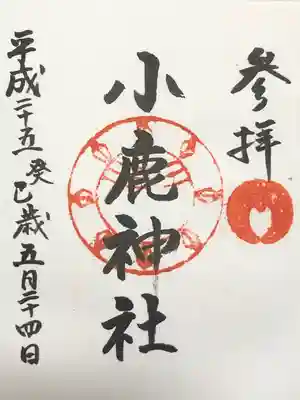 参拝
小鹿神社
平成二十五癸巳歳五月二十四日